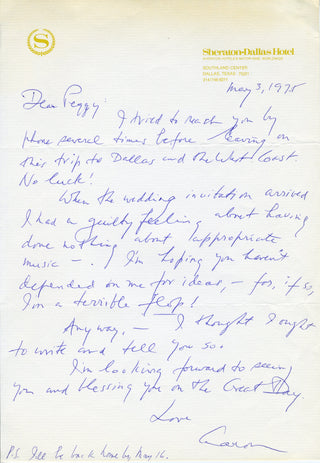 S
Sheraton-Dallas Hotel
SHERATON HOTELS & MOTOR INNS, WORLDWIDE
SOUTHLAND CENTER
DALLAS, TEXAS 75201
May 3, 1975
Dear Peggy:
I tried to reach you by
phone several times before leaving on
this trip to Dallas and the West Coast.
No luck!
When the wedding invitation arrived
I had a guilty feeling about having
done nothing about appropriate
music –. I'm hoping you haven't
depended on me for ideas, – for, if so,
I'm a terrible flop!
Anyway, – I thought I ought
to write and tell you so.
I'm looking forward to seeing
you and blessing you on the Great Day.
Love
Aaron
P.S. I'll be back home by May 16.